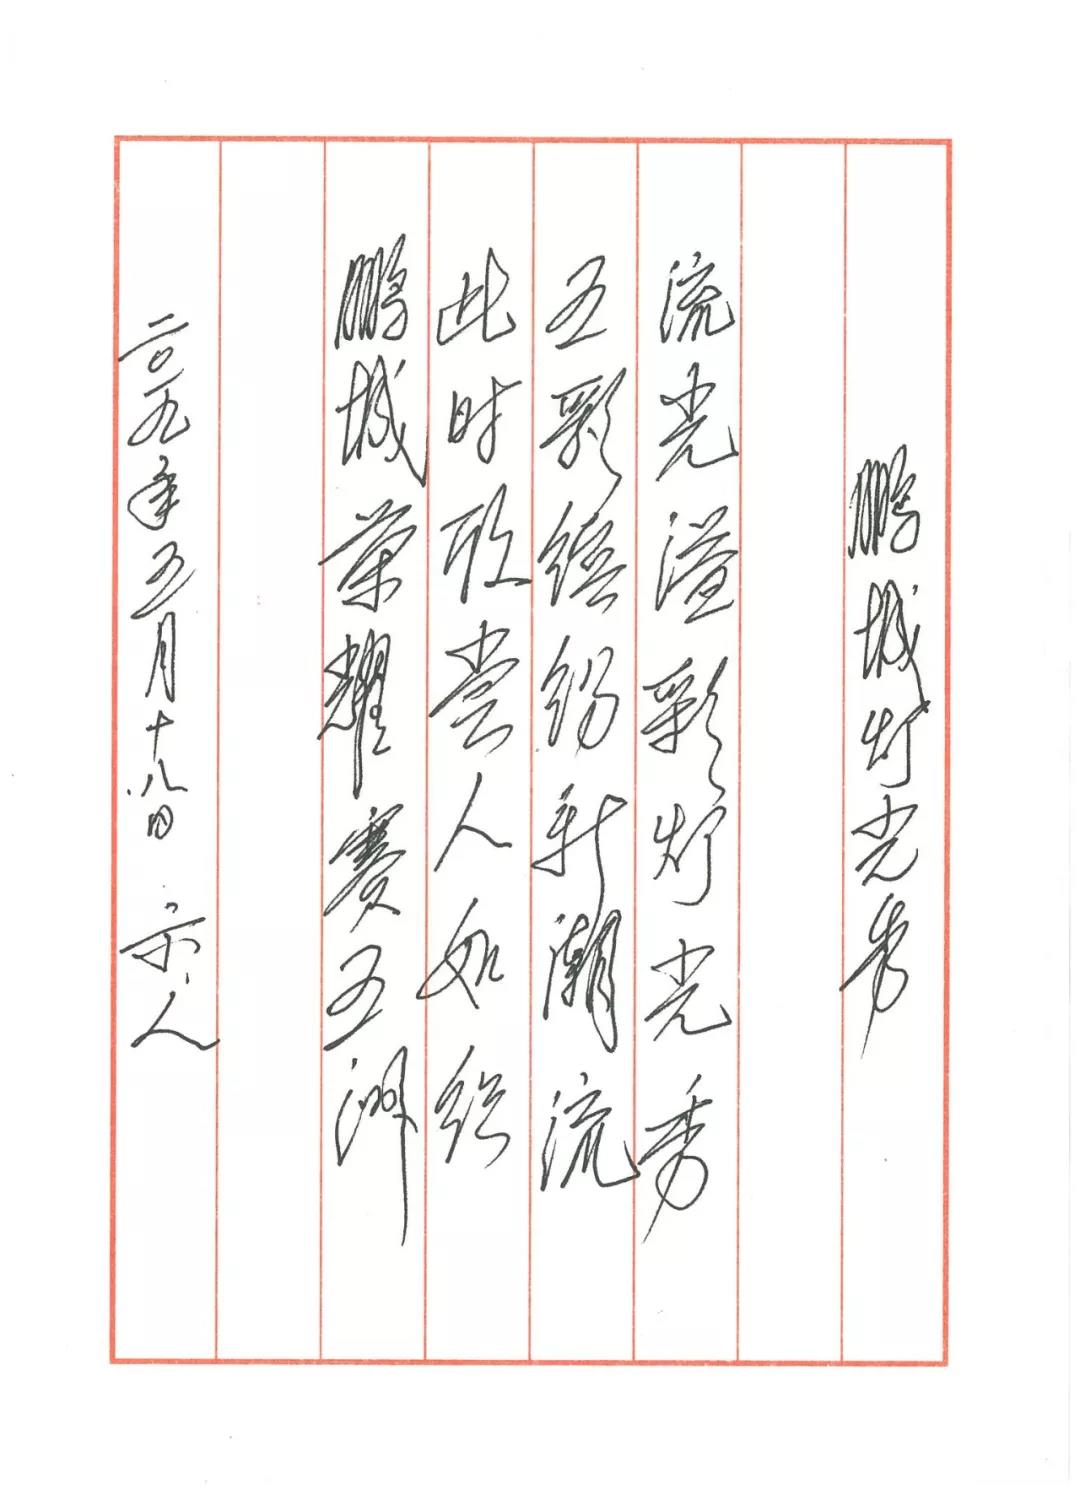 鹏城灯光秀
流光溢彩灯光秀
五彩缤纷新潮流
此时赏人如织
鹏城荣耀赛五洲
二〇一九年五月十八日 人